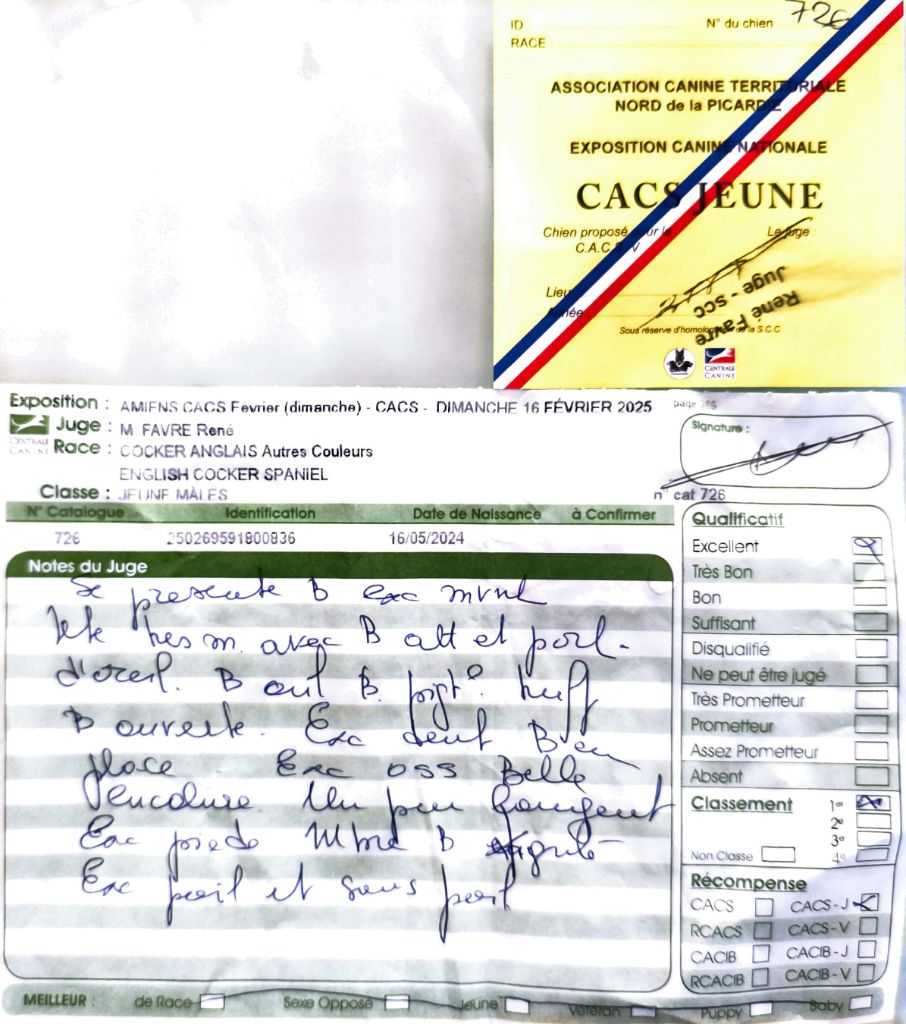 ID
N° du chien 726
RACE :
ASSOCIATION CANINE TERRITORIALE
NORD de la PICARDIE
EXPOSITION CANINE NATIONALE
CACS JEUNE
Chien proposé pour le
Le juge :
C.A.C.S. V
Lieu
Année
René Favre
Juge - SCC
Sous réserve d'homologation de la S.C.C
CENTRALE
CANINE
Exposition : AMIENS CACS Février (dimanche) - CACS - DIMANCHE 16 FÉVRIER 2025
Juge : M. FAVRE René
CENTRALE
CANINE
Race : COCKER ANGLAIS Autres Couleurs
ENGLISH COCKER SPANIEL
Classe : JEUNE MÂLES
Signature :
n° cat 726
N° Catalogue Identification Date de Naissance à Confirmer
726 250269591800836 16/05/2024
Notes du Juge
Se presente B exc mvnt
tete tres m. avec B att et port.
d'oreil. B œil B. pigt° truff
B ouverte. Exc dent Bien
place Exc oss Belle
encolure. Un peu
Exc pieds Mbre B
Exc poil et sous poil
Qualificatif
Excellent
Très Bon
Bon
Suffisant
Disqualifié
Ne peut être jugé
Très Prometteur
Prometteur
Assez Prometteur
Absent
Classement 1er
2e
3e
Non Classe 4e
Récompense
CACS CACS-J
RCACS CACS-V
CACIB CACIB-J
RCACIB CACIB-V
MEILLEUR : de Race Sexe Opposé Jeune Vétéran Puppy Baby